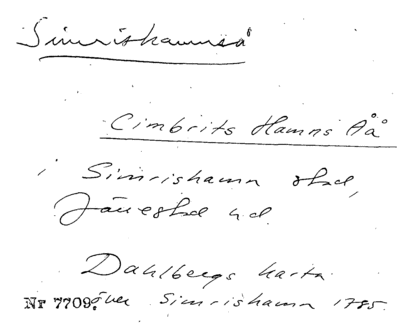 Simrishamnså
Cimbrits Hamns Åå
i Simrishamn stad,
Järrestad hd.
Dahlbergs karta
Nr 7709. över Simrishamn 1785.